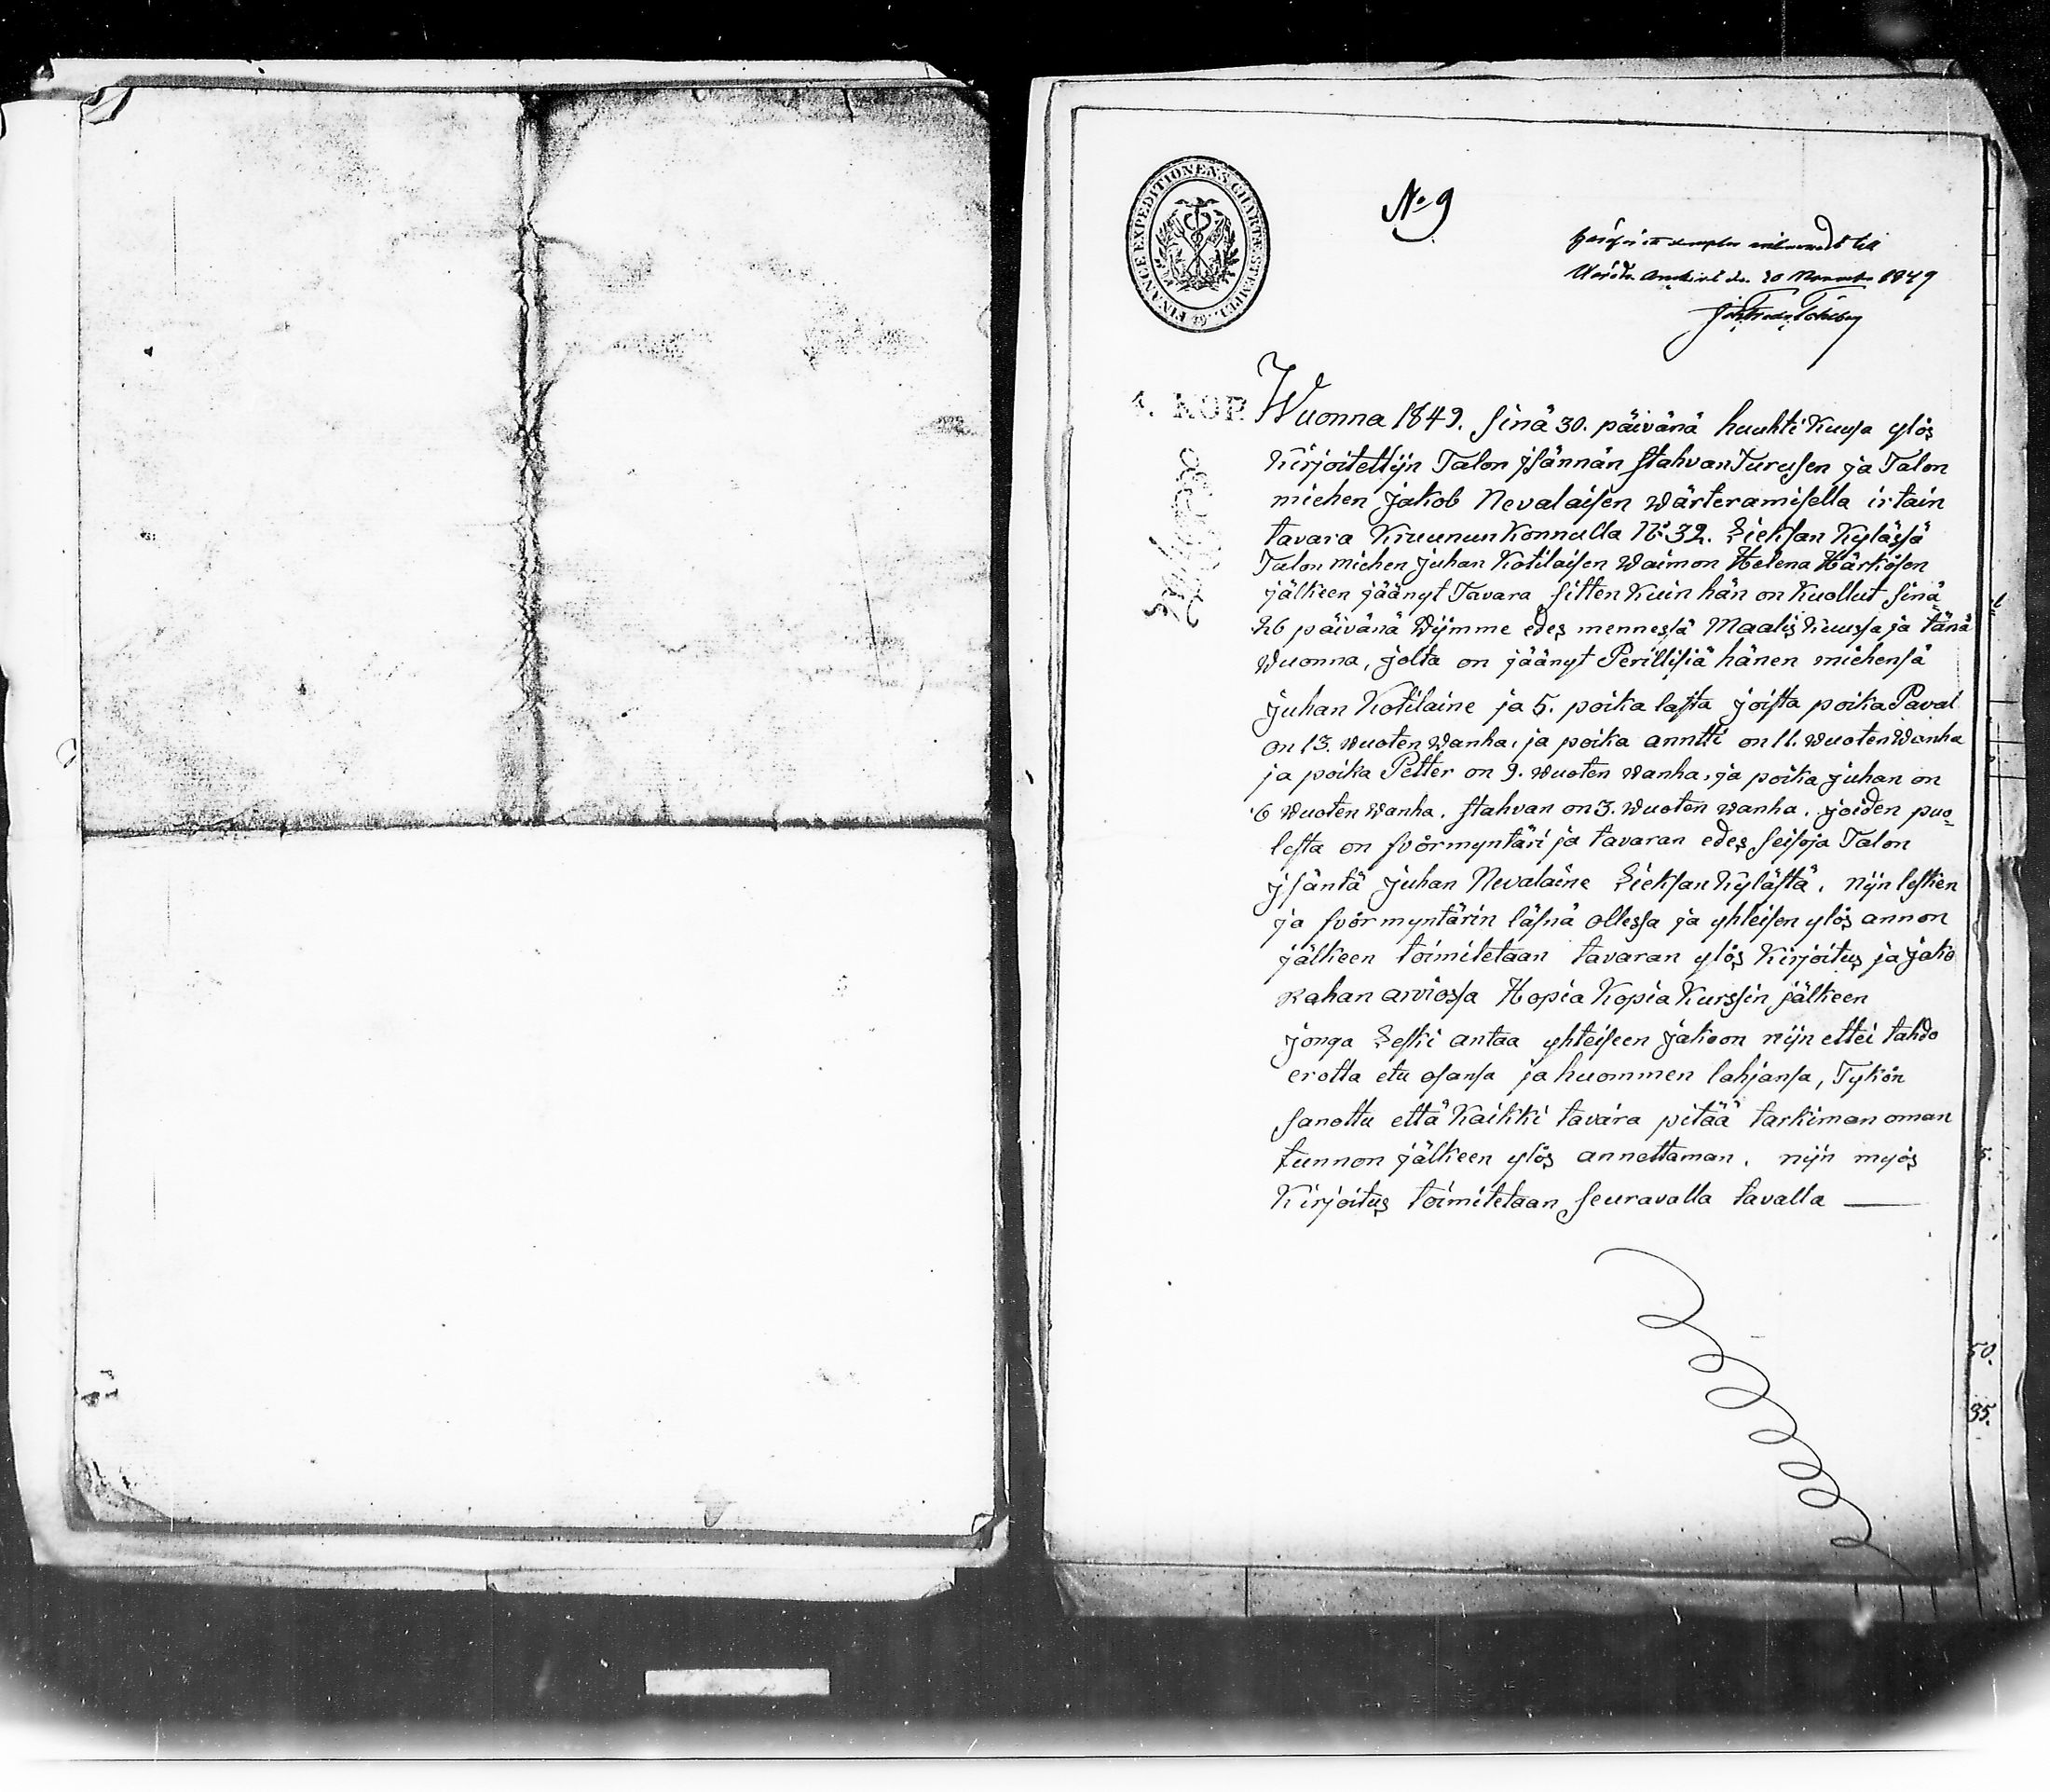 FINANCE EXPEDITIONENS CHARTÆ STEMPEL
No 9
den 30 November 1849
4. KOP.
Wuonna 1849. sinä 30. päivänä huuhti Kuusa ylös
Kirjoitettijn Talon jsännän Stahvan Turusen ja Talon
miehen Jakob Nevalaisen Wärteramisella irtain
tavara Kruunun Konnulla No 32. Lieksan Kylässä
Talon miehen Juhan Kotilaisen Waimon Helena Härkösen
jälkeen jäänyt Tavara sitten Kuin hän on Kuollut sinä
26 päivänä Wijmme edes mennessä Maalis Kuussa ja tänä
Wuonna, jolta on jäänyt Perillisiä hänen miehensä
Juhan Kotilaine ja 5. poika lasta joista poika Paval
on 13. wuoten Wanha, ja poika anntti on 11. wuoten Wanha
ja poika Petter on 9. wuoten wanha, ja poika juhan on
6 wuoten wanha. Stahvan on 3. wuoten wanha. joiden puo=
lesta on fvörmyntäri ja tavaran edes seisoja Talon
jsäntä Juhan Nevalaine Lieksan Kylästä. nijn lesken
ja fvörmyntärin läsnä ollessa ja yhteisen ylös annon
jälkeen toimitetaan tavaran ylös Kirjoitus ja jako
Rahan arviossa Hopia Kopia Kurssin jälkeen
jonga Leski antaa yhteiseen jakoon nijn ettei tahdo
erotta etu osansa ja huommen lahjansa, Tykön
sanottu että Kaikki tavara pitää tarkiman oman
tunnon jälkeen ylös annettaman. nijn myös
Kirjoitus toimitetaan seuravalla tavalla
50.
35.